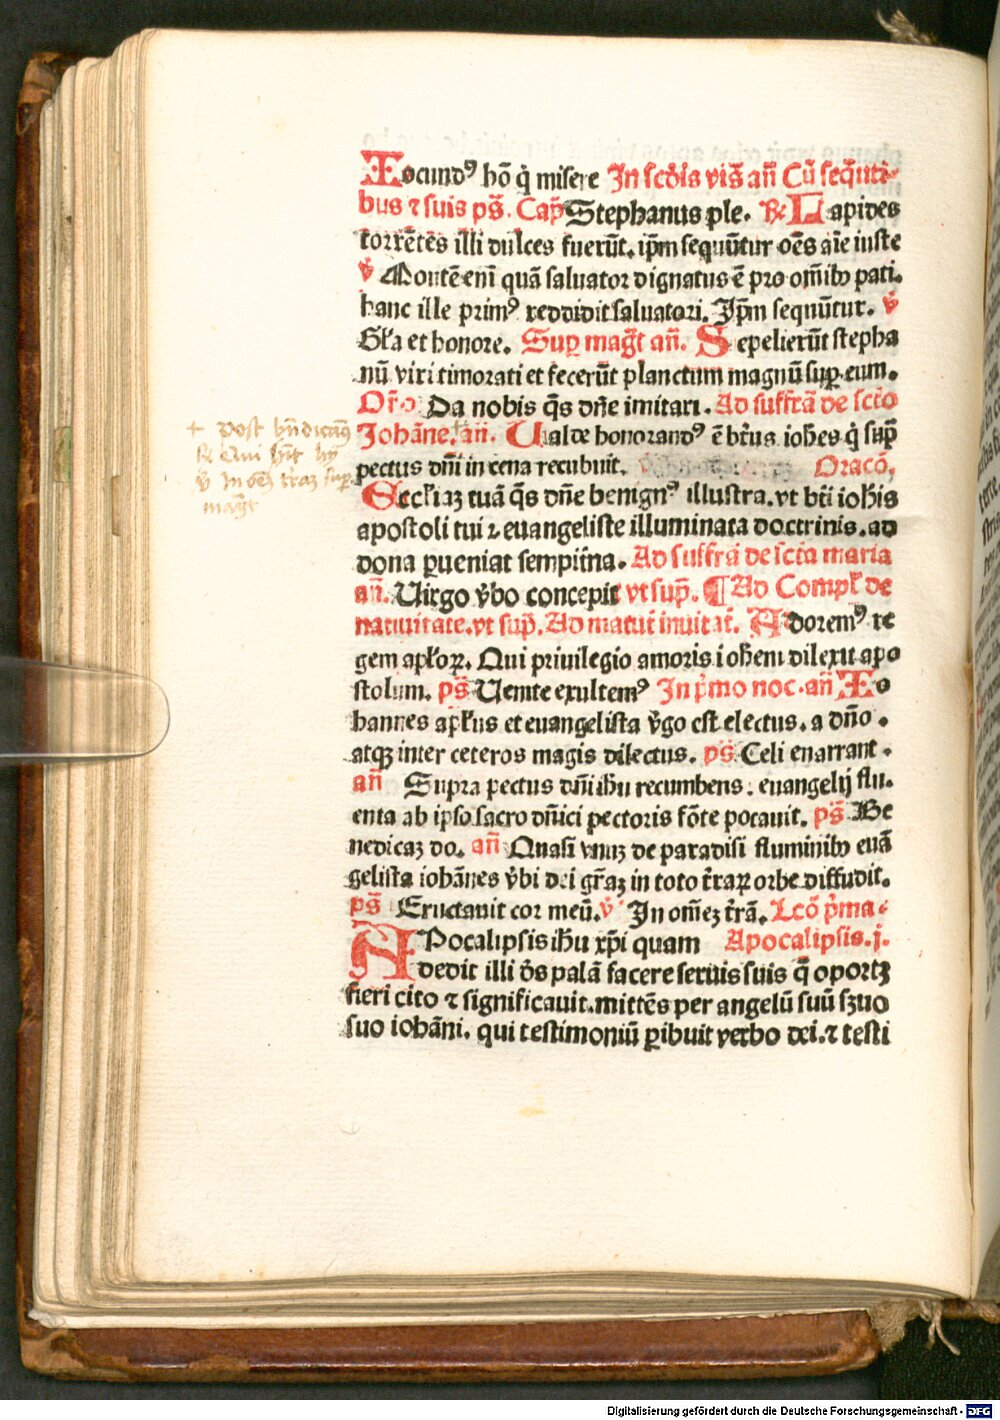 Iocundꝰ hõ q̇ misere In scd̃is vis̃ añ Cũ seq̃nti-
bus ⁊ suis ps̃. Cap̃ Stephanus ple. ℟ Lapides
torrẽtes illi dulces fuerũt. ip̃m sequũtur oẽs aĩe iuste
℣ Mortẽ enĩ quã saluator dignatus ẽ pro om̃ibꝰ pati.
hanc ille primꝰ reddidit saluatori. Ip̃m sequũtur. ℣
Gl̃a et honore. Suꝑ mag̃t añ. Sepelierũt stepha
nũ viri timorati et fecerũt planctum magnũ suꝑ eum.
Or̃o Da nobis q̃s dñe imitari. Ad suffrã de sc̃to
Johãne. añ. Ualde honorandꝰ ẽ bt̃us ioh̃es q̇ sup̃
pectus dñi in cena recubuit. Oracõ,
Eccl̃iaꝫ tuã q̃s dñe benignꝰ illustra. vt bt̃i ioh̃is
apostoli tui ⁊ euangeliste illuminata doctrinis. ad
dona ꝑueniat sempit̃na. Ad suffrã de sc̃ta maria
añ. Uirgo v̾bo concepit vt sup̃. ¶ Ad Compl̃ de
natiuitate. vt sup̃. Ad matut̃ inuitat̃. Adoremꝰ re
gem apl̃oꝝ. Qui priuilegio amoris ioh̃em dilexit apo
stolum. ps̃ Uenite exultemꝰ In p̃mo noc. añ Io
hannes apl̃us et euangelista v̾go est electus. a dño.
atqꝫ inter ceteros magis dilectus. ps̃ Celi enarrant.
añ Supra pectus dñi ihu recumbens. euangelij flu.
enta ab ipso sacro dñici pectoris fõte potauit. ps̃ Be
nedicaꝫ do. añ Quasi vnuꝫ de paradisi fluminibꝰ euã
gelista iohãnes v̾bi dei gr̃aꝫ in toto t̃raꝝ orbe diffudit.
ps̃ Eructauit cor meũ. ℣ In om̃eꝫ t̃rã. Lcõ p̃ma.
APocalipsis ihu xp̃i quam Apocalipsis. j.
dedit illi d̾s palã facere seruis suis q̃ oportꝫ
fieri cito ⁊ significauit. mittẽs per angelũ suũ s̾uo
suo iohãni. qui testimoniũ ꝑibuit verbo dei. ⁊ testi
+ post bñdicam9
℟ Qui h̃t
℣ In oẽꝫ t̃raꝫ suꝑ
mag̃t
Digitalisierung gefördert durch die Deutsche Forschungsgemeinschaft - DFG